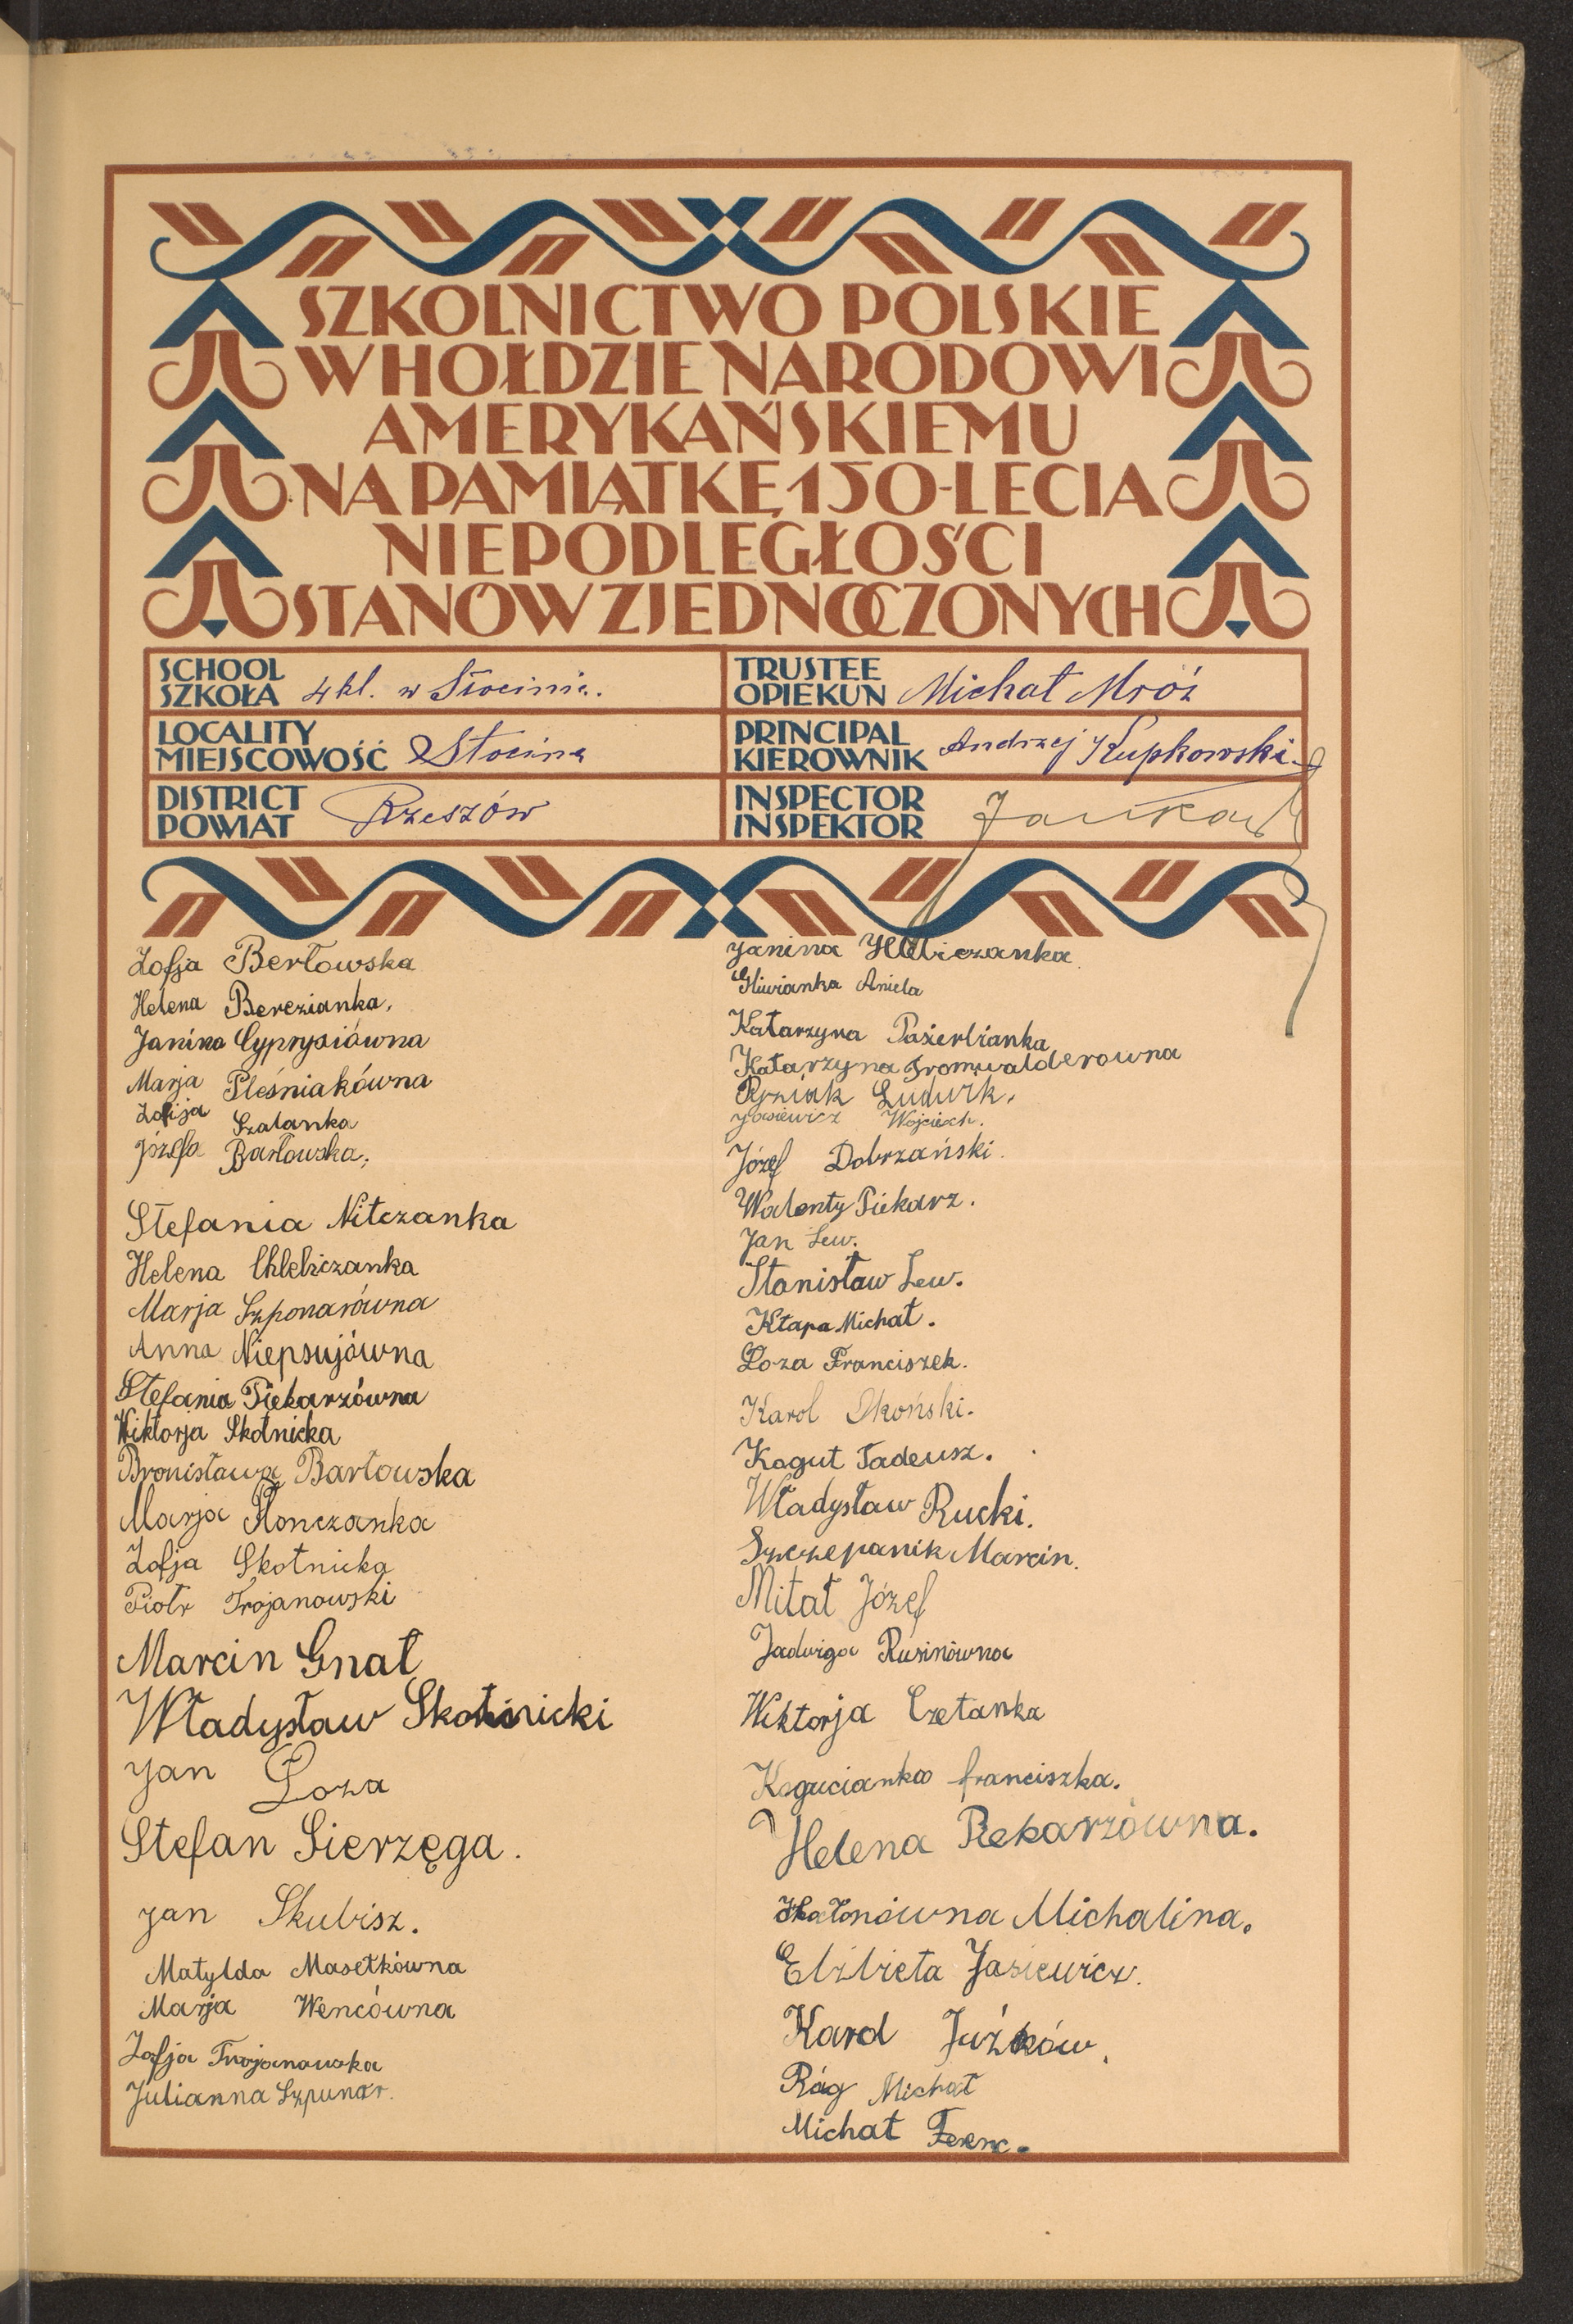 SZKOLNICTWO POLSKIE
W HOŁDZIE NARODOWI
AMERYKAŃSKIEMU
NA PAMIĄTKĘ 150-LECIA
NIEPODLEGŁOŚCI
STANÓW ZJEDNOCZONYCH
SCHOOL
SZKOŁA 4 kl. w Słocinie.
LOCALITY
MIEJSCOWOŚĆ Słocina
DISTRICT
POWIAT Rzeszów
TRUSTEE
OPIEKUN Michał Mróz
PRINCIPAL
KIEROWNIK Andrzej Kupkowski
INSPECTOR
INSPEKTOR
Zofja Berłowska
Helena Berezianka,
Janina Cyprysiówna
Marja Pleśniakówna
Zofija Szalanka
Józefa Barłowska,
Stefania Nitczanka
Helena Chlebiczanka
Marja Szponarówna
Anna Niepsujówna
Stefania Piekarzówna
Wiktorja Skotnicka
Bronisława Barłowska
Marja Płonczanka
Zofja Skotnicka
Piotr Trojanowski
Marcin Gnat
Władysław Skotnicki
Jan Loza
Stefan Sierzęga.
Jan Skubisz.
Matylda Masełkówna
Marja Wencówna
Zofja Trojanowska
Julianna Szpunar.
Janina
Gliwianka Aniela
Katarzyna Pasierbianka
Katarzyna Fromwalderowna
Ryziak Ludwik.
Jasiewicz Wojciech.
Józef Dobrzański.
Walenty Piekarz.
Jan Lew.
Stanisław Lew.
Kłapa Michał.
Loza Franciszek.
Karol Skoński.
Kogut Tadeusz.
Władysław Rucki.
Szczepanik Marcin.
Mitał Józef
Jadwiga Rusinówna
Wiktorja Czetanka
Kogucianka franciszka.
Helena Piekarzówna.
Michalina.
Elżbieta Jasiewicz.
Karol Juźków.
Róg Michał
Michał Ferenc.